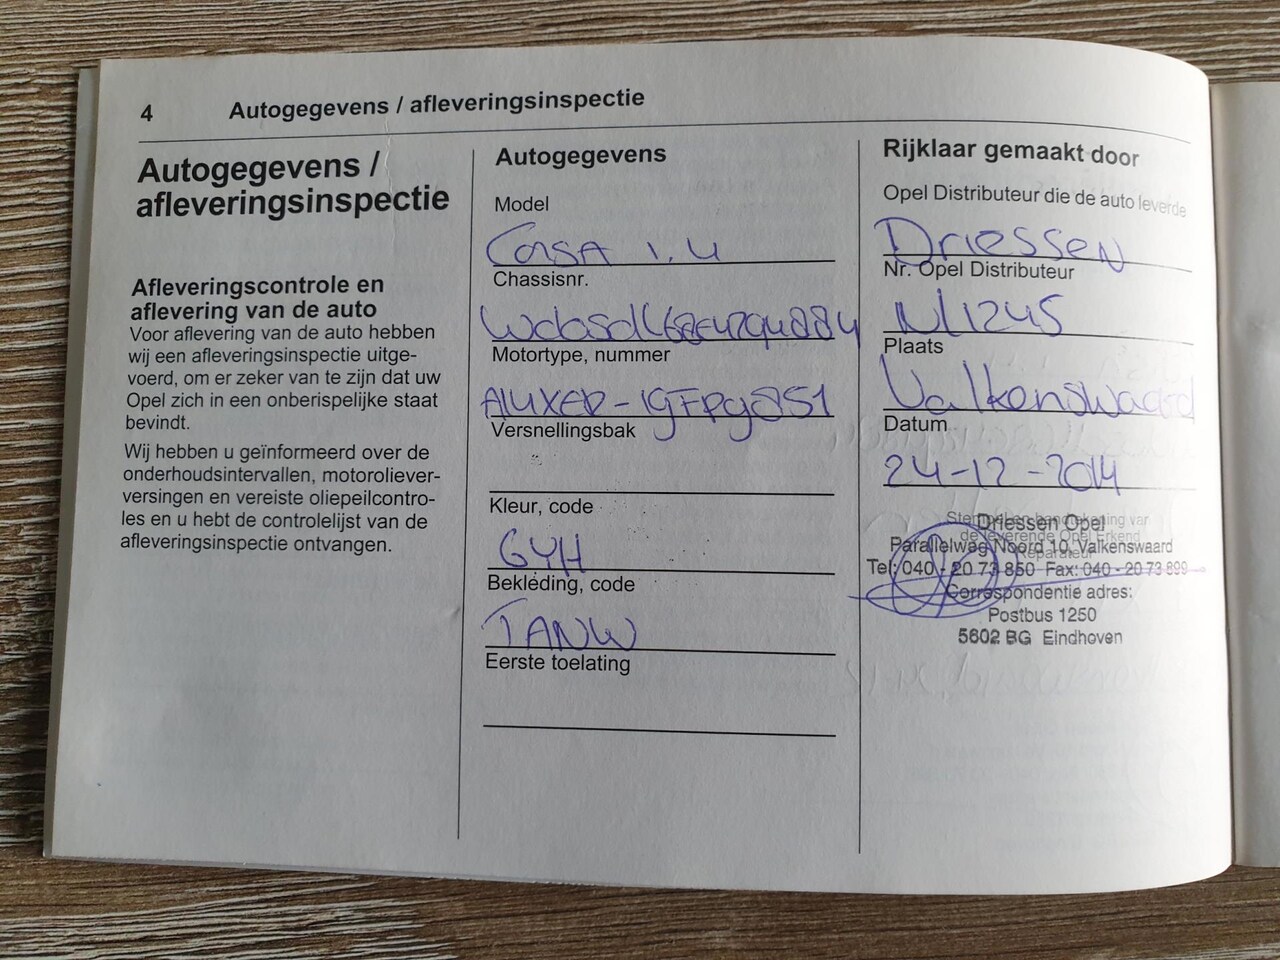 4 Autogegevens / afleveringsinspectie
Autogegevens /
afleveringsinspectie
Afleveringscontrole en
aflevering van de auto
Voor aflevering van de auto hebben
wij een afleveringsinspectie uitge-
voerd, om er zeker van te zijn dat uw
Opel zich in een onberispelijke staat
bevindt.
Wij hebben u geïnformeerd over de
onderhoudsintervallen, motoroliever-
versingen en vereiste oliepeilcontro-
les en u hebt de controlelijst van de
afleveringsinspectie ontvangen.
Autogegevens
Model
1.4
Chassisnr.
Motortype, nummer
Versnellingsbak
Kleur, code
GYH
Bekleding, code
TANW
Eerste toelating
Rijklaar gemaakt door
Opel Distributeur die de auto leverde
Driessen
Nr. Opel Distributeur
Nl1245
Plaats
Valkenswaard
Datum
24-12-2014
Stempel en handtekening van
de leverende Opel Erkend
Reparateur
Driessen Opel
Parallelweg Noord 10, Valkenswaard
Tel: 040 - 20 73 850 Fax: 040 - 20 73 899
Correspondentie adres:
Postbus 1250
5602 BG Eindhoven